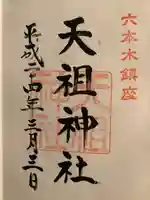 六本木鎮座
天祖神社
平成二十四年三月三日